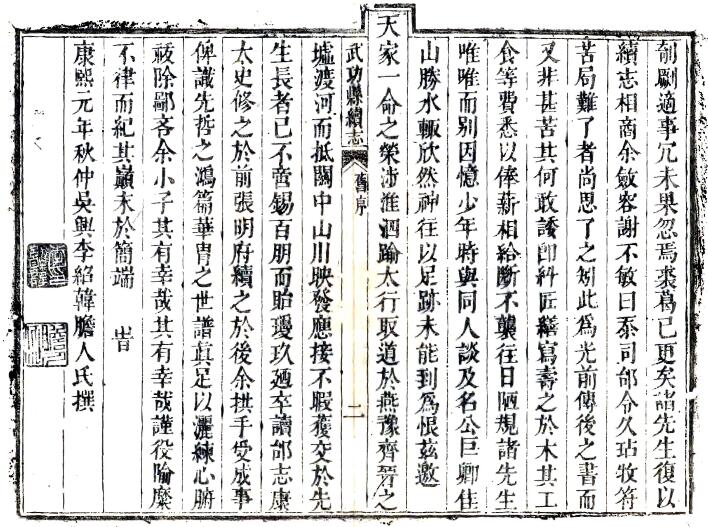 剞劂適事冗未果忽焉裘葛已更矣諸先生復以
續志相商余斂容謝不敏曰忝司邰令久玷牧符
苦局難了者尚思了之矧此為光前傳後之書而
又非甚苦其何敢諉卽糾匠繕寫壽之於木其工
食等費悉以俸薪相給斷不襲往日陋規諸先生
唯唯而別因憶少年時與同人談及名公巨卿佳
山勝水輙欣然神往以足跡未能到為恨茲邀
天家一命之榮沛淮泗踰太行取道於燕豫齊晉之
武功縣續志 舊序 二
墟渡河而抵關中山川映發應接不暇獲交於先
生長者已不啻錫百朋而貽瓊玖廼卒讀邰志康
太史修之於前張明府續之於後余拱手受成事
俾識先哲之鴻篇華胄之世譜眞足以灑練心腑
祓除鄙吝余小子其有幸哉其有幸哉謹役隃糜
不律而紀其巔末於簡端 旹
康熙元年秋仲吳興李紹韓膽人氏撰